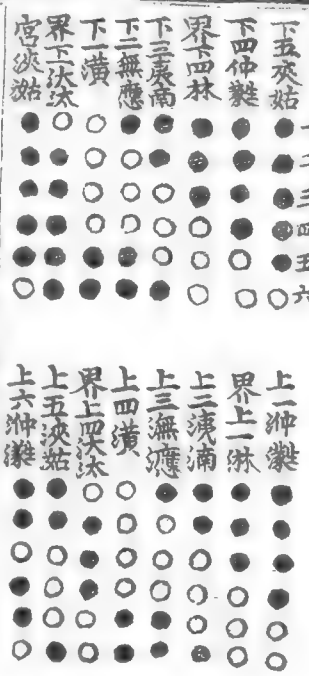 下五夾姑
下四仲蕤
界下四林
下三夷南
下二無應
下一潢
界下一汏汰
宮浹㴌
一
二
三
四
五
六
上一㳞㶋
界上一淋
上二洟湳
上三潕㶐
上四潢
界上四汏汰
上五浹㴌
上六㳞㶋